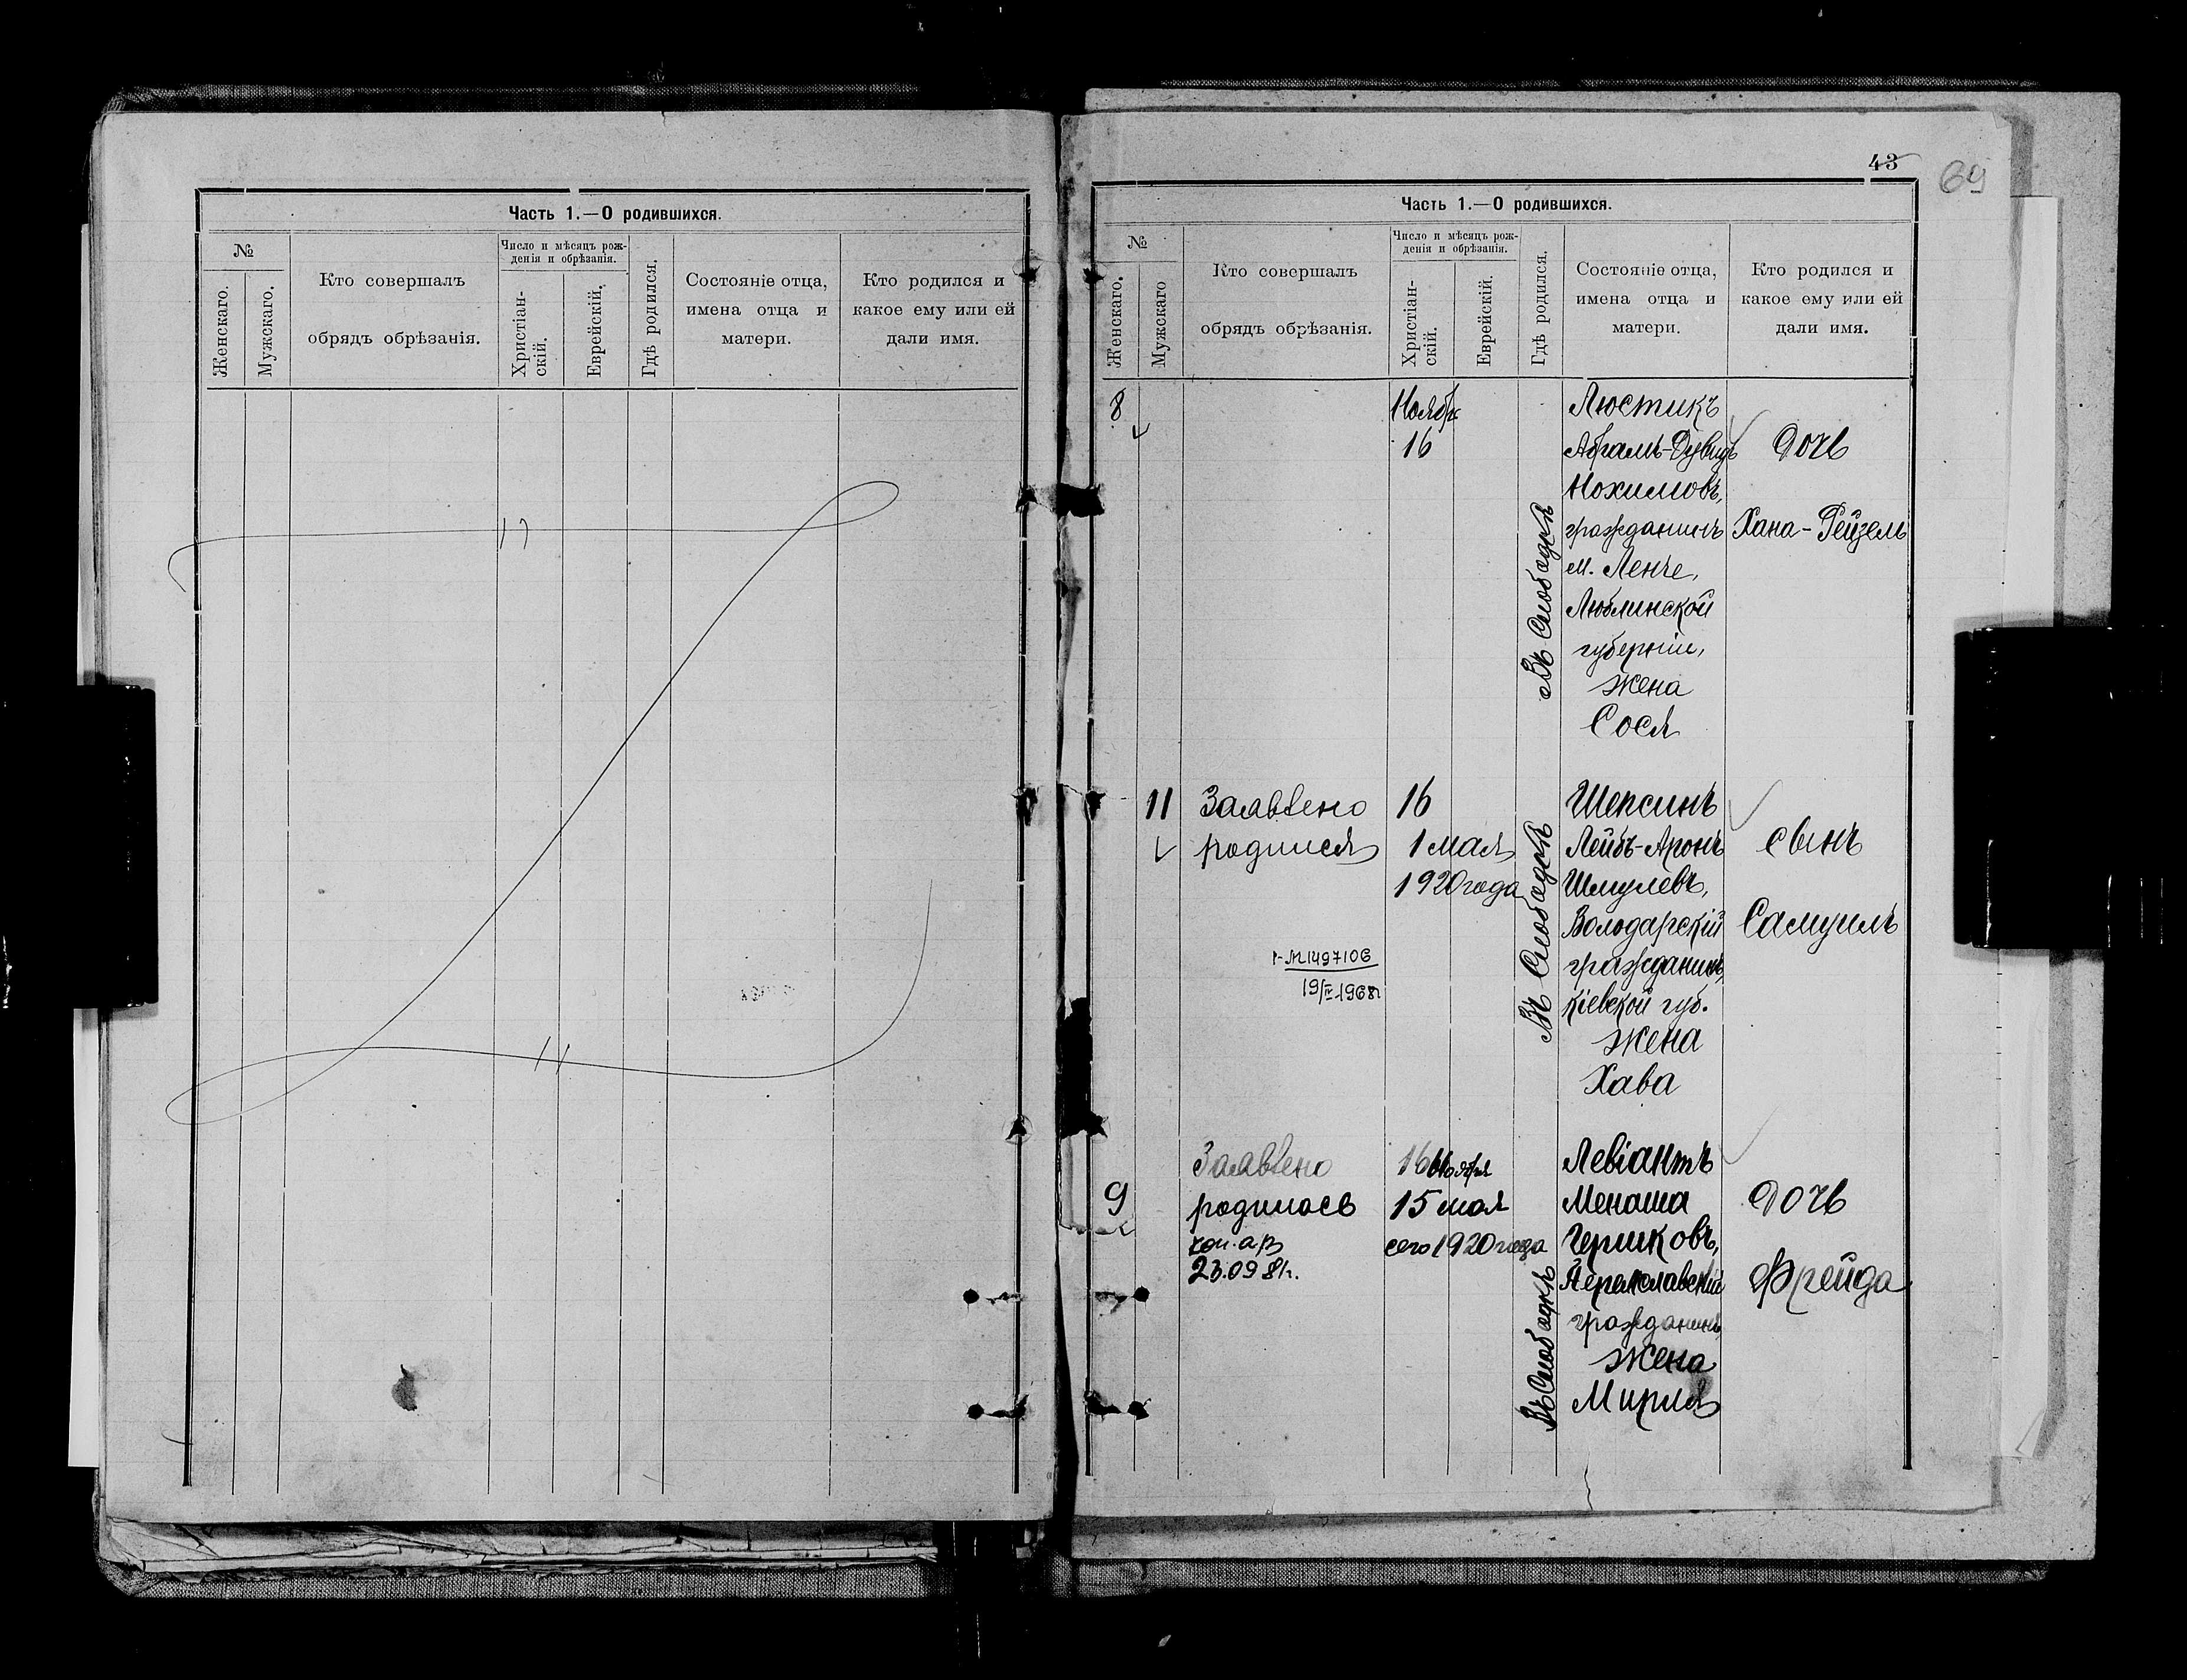 Часть 1.—О родившихся.
№
Женскаго.
Мужскаго.
Кто совершалъ
обрядъ обрѣзанія.
Число и мѣсяцъ рож-
денія и обрѣзанія.
Христіан-
скій.
Еврейскій.
Гдѣ родился.
Состояніе отца,
имена отца и
матери.
Кто родился и
какое ему или ей
дали имя.
43
69
Часть 1.—О родившихся.
№
Женскаго.
Мужскаго
Кто совершалъ
обрядъ обрѣзанія.
Число и мѣсяцъ рож-
денія и обрѣзанія.
Христіан-
скій.
Еврейскій.
Гдѣ родился.
Состояніе отца,
имена отца и
матери.
Кто родился и
какое ему или ей
дали имя.
8
Ноябр
16
Въ Слободкѣ
Люстикъ
Абрамъ-Дувидъ
Нохимовъ,
гражданинъ
м. Ленче,
Люблинской
губерніи,
жена
Сося
дочь
Хана-Рейзель
11
Заявлено
родился
16
1 мая
1920 года
1-М1497106
19/IV-1968г
Въ Слободкѣ
Шепсинъ
Лейбъ-Аронъ
Шмулевъ,
Володарскій
гражданинъ,
Кіевской губ.
жена
Хава
сынъ
Самуилъ
9
Заявлено
родилась
23.09 81г.
16 Ноября
15 мая
сего 1920 года
Въ Слободкѣ
Левіантъ
Менаша
Гершковъ,
Переяславскій
гражданинъ,
жена
Мирля
дочь
Фрейда